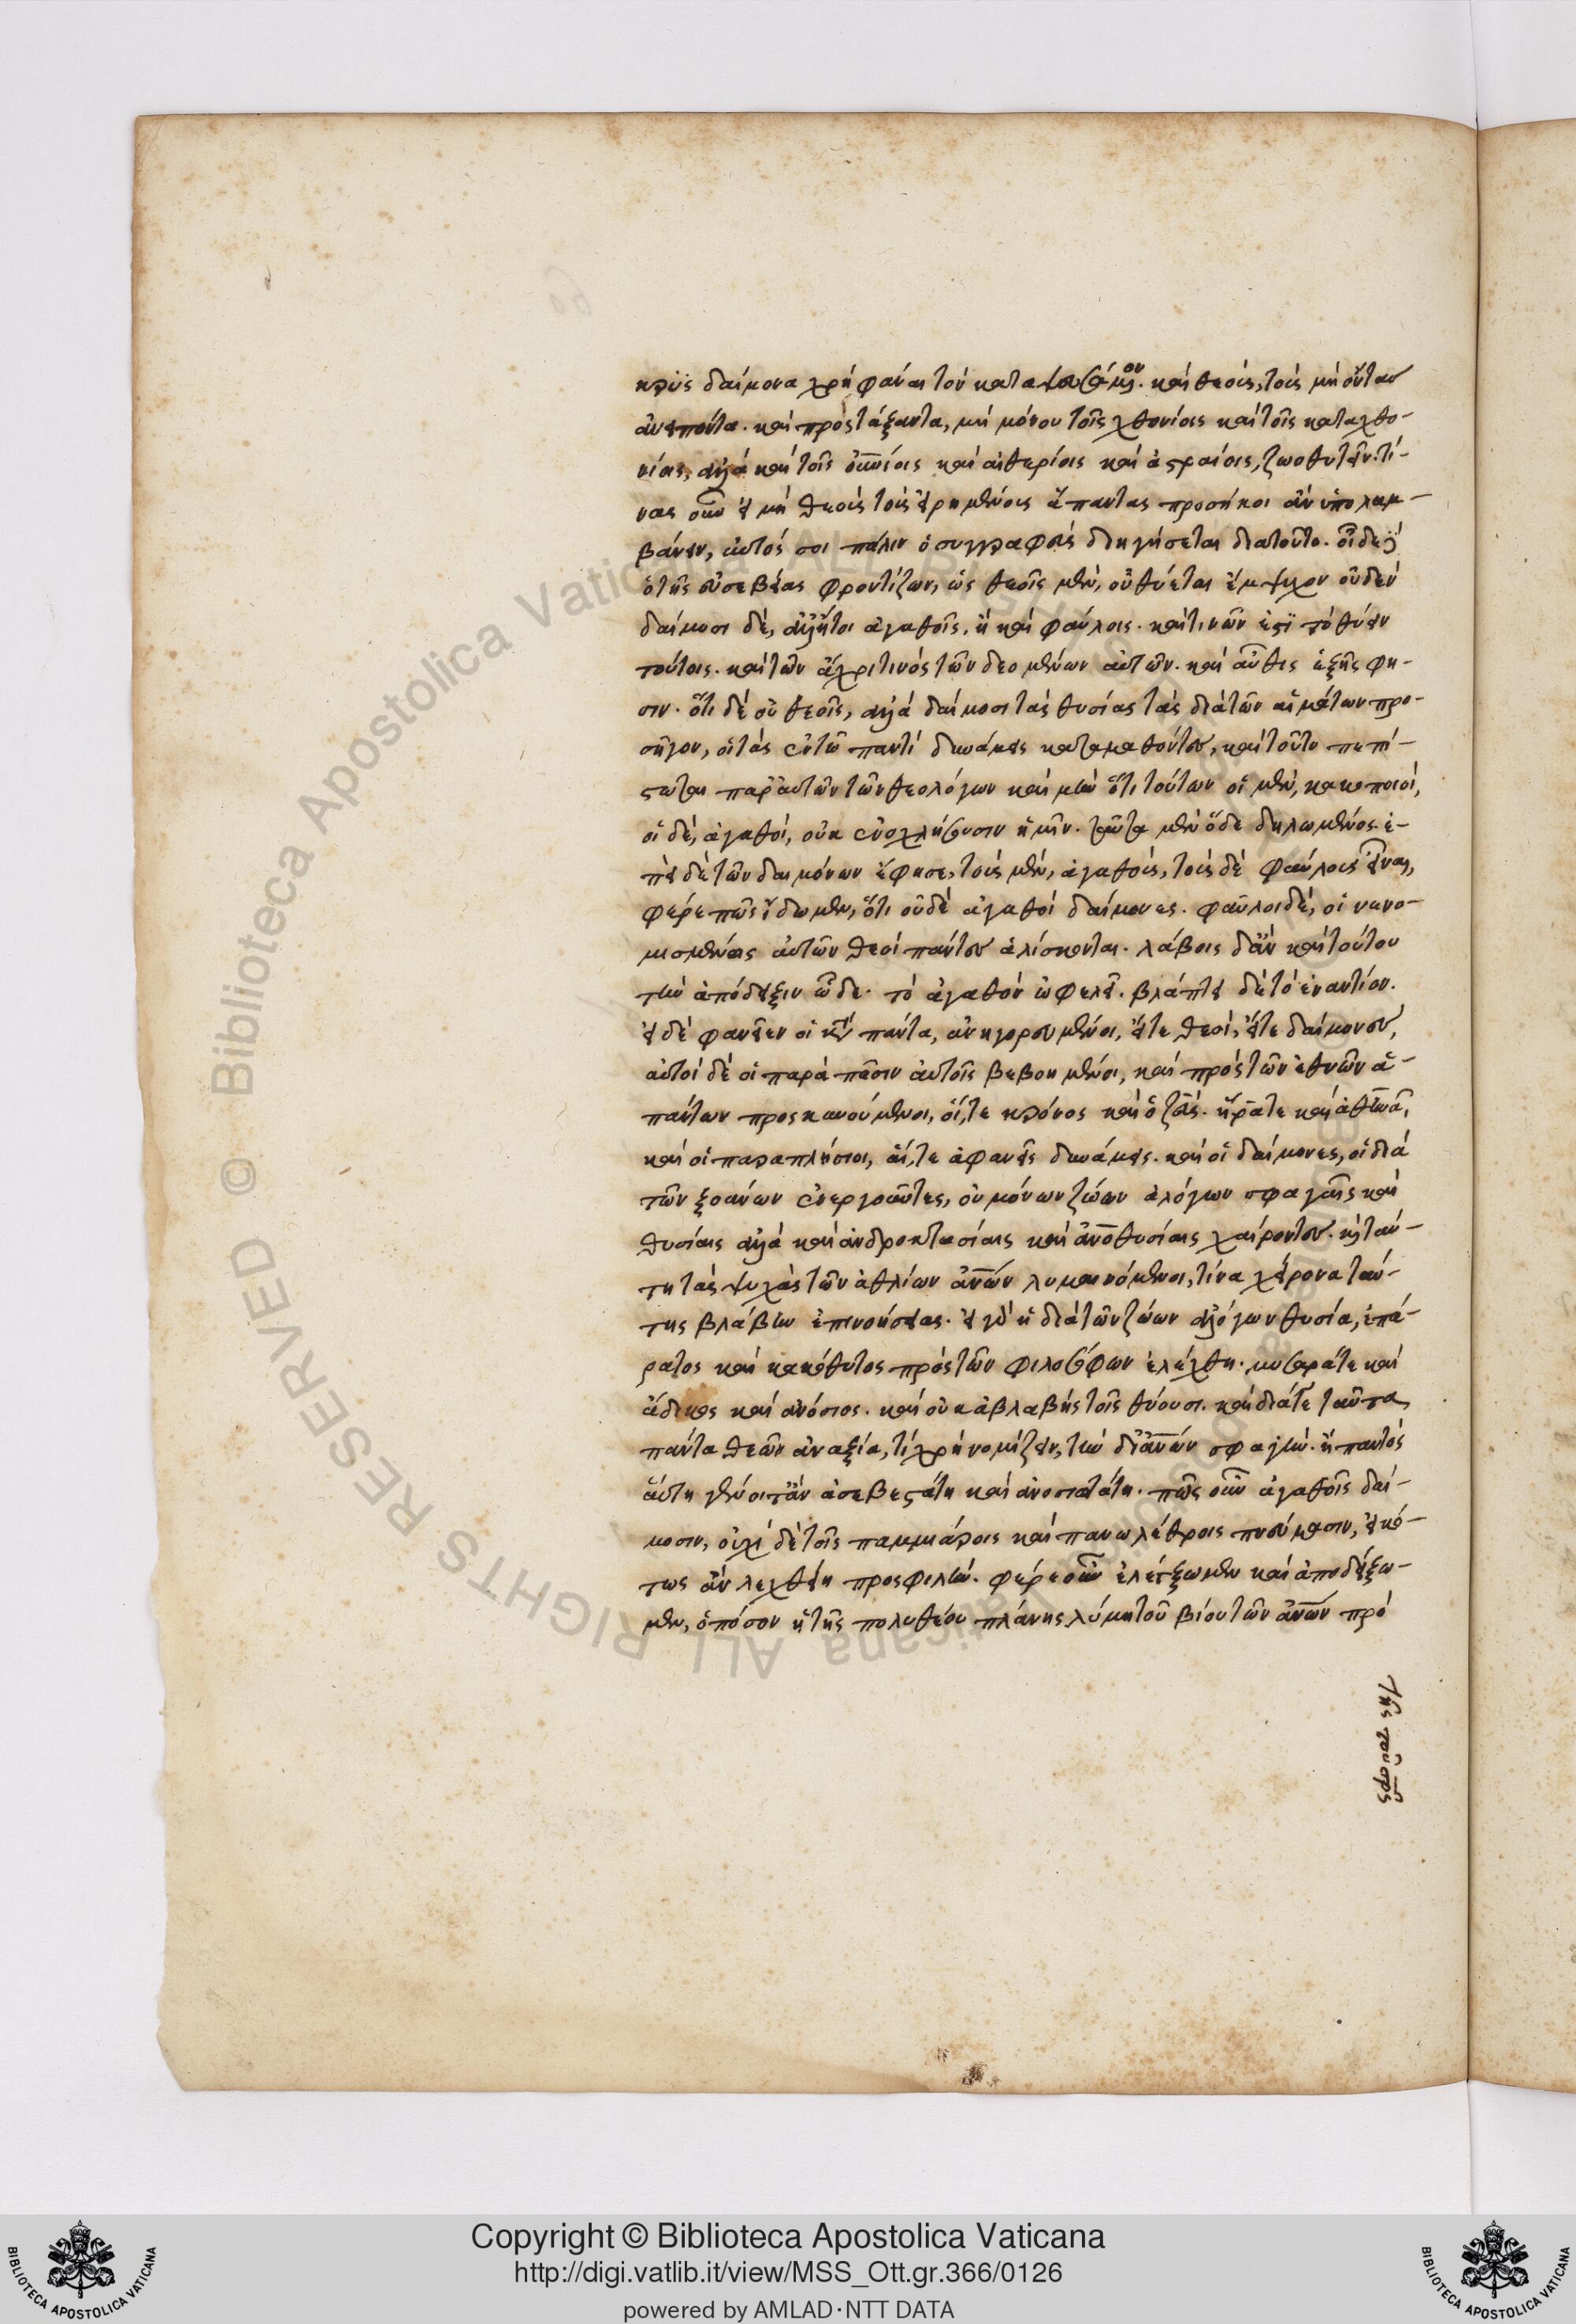 κρὺς δαίμονα χρὴ φάναι τὸν καταψευσάμενον. καὶ θεοὺς, τοὺς μὴ ὄντας
ἀνειπόντα. καὶ προστάξαντα, μὴ μόνον τοῖς χθονίοις καὶ τοῖς καταχθο-
νίοις, ἀλλὰ καὶ τοῖς οὐνίοις καὶ αἰθερίοις καὶ ἀστραίοις, ζωοθυτεῖν. τί-
νας οὖν εἰ μὴ θεοὺς τοὺς εἰρημένους ἅπαντας προσήκοι ἂν ὑπολαμ-
βάνειν, αὐτός σοι πάλιν ὁ συγγραφεὺς διηγήσεται διὰ τούτο. οἶδε γὰρ
ὁ τῆς εὐσεβείας φροντίζων, ὡς θεοῖς μὲν, οὐ θύεται ἔμψυχον οὐδὲν
δαίμοσι δὲ, ἀλλ' ἤτοι ἀγαθοῖς, ἢ καὶ φαύλοις. καὶ τινῶν ἐστὶ τὸ θύειν
τούτοις. καὶ τῶν ἄχρι τινὸς τῶν δεομένων αὐτῶν. καὶ αὖθις ἑξῆς φη-
σιν. ὅτι δὲ οὐ θεοῖς, ἀλλὰ δαίμοσι τὰς θυσίας τὰς διὰ τῶν αἱμάτων προ-
σῆγον, οἱ τὰς ἐν τῶ παντὶ δυνάμεις καταμαθόντες, καὶ τοῦτο πεπί-
στωται παρ' αὐτῶν τῶν θεολόγων καὶ μὴν ὅτι τούτων οἱ μὲν, κακοποιοὶ,
οἱ δὲ, ἀγαθοὶ, οὐκ ἐνοχλήσουσιν ἡμῖν. ταῦτα μὲν ὅδε δηλωμένος. ἐ-
πεὶ δὲ τῶν δαιμόνων ἔφησε, τοὺς μὲν, ἀγαθοὺς, τοὺς δὲ φαύλους εἶναι,
φέρε πῶς ἴδωμεν, ὅτι οὐδὲ ἀγαθοὶ δαίμονες. φαῦλοι δὲ, οἱ νενο-
μισμένοις αὐτῶν θεοὶ πάντες ἁλίσκονται. λάβοις δ' ἂν καὶ τούτου
τὴν ἀπόδειξιν ὧδε. τὸ ἀγαθὸν ὠφελεῖ. βλάπτει δὲ τὸ ἐναντίον.
εἰ δὲ φανεῖεν οἱ κατὰ πάντα, ἀνηγορευμένοι, εἴτε θεοὶ, εἴτε δαίμονες,
αὐτοὶ δὲ οἱ παρὰ πᾶσιν αὐτοῖς βεβοημένοι, καὶ πρὸς τῶν ἐθνῶν ἁ-
πάντων προσκυνούμενοι, ὅ, τε κρόνος καὶ ὁ ζεὺς. ἥρα τε καὶ ἀθηνᾶ,
καὶ οἱ παραπλήσιοι, αἵ, τε ἀφανεῖς δυνάμεις. καὶ οἱ δαίμονες, οἱ διὰ
τῶν ξοάνων ἐνεργοῦντες, οὐ μόνων ζώων ἀλόγων σφαγαῖς καὶ
θυσίαις ἀλλὰ καὶ ἀνδροκτασίαις καὶ ἀνοθυσίαις χαίροντες. καὶ ταύ-
τη τὰς ψυχὰς τῶν ἀθλίων ἀνῶν λυμαινόμενοι, τίνα χείρονα ταύ-
της βλάβην ἐπινοήσειας. εἰ γὰρ ἡ διὰ τῶν ζώων ἀλόγων θυσία, ἐπά-
ρατος καὶ κακόθυτος πρὸς τῶν φιλοσόφων ἐλέχθη. μυσαρά τε καὶ
ἄδικος καὶ ἀνόσιος. καὶ οὐκ ἀβλαβὴς τοῖς θύουσι. καὶ διά τε ταῦτα
πάντα θεῶν ἀναξία, τί χρὴ νομίζειν, τὴν δι' ἀνῶν σφαγὴν. ἢ παντὸς
αὕτη γένοιτ' ἂν ἀσεβεστάτη καὶ ἀνοσιωτάτη. πῶς οὖν ἀγαθοῖς δαί-
μοσιν, οὐχὶ δὲ τοῖς παμμιάροις καὶ πανωλέθροις πνεύμασιν, εἰκό-
τως ἂν λεχθείη προσφιλὴς. φέρε οὖν ἐλέγξωμεν καὶ ἀποδείξω-
μεν, ὁπόσον ἡ τῆς πολυθέου πλάνης λύμη τοῦ βίου τῶν ἀνῶν πρὸ
τῆς τοῦ σρς
Copyright © Biblioteca Apostolica Vaticana
http://digi.vatlib.it/view/MSS_Ott.gr.366/0126
powered by AMLAD·NTT DATA
BIBLIOTECA APOSTOLICA VATICANA
BIBLIOTECA APOSTOLICA VATICANA
© Biblioteca Apostolica Vaticana ALL RIGHTS RESERVED